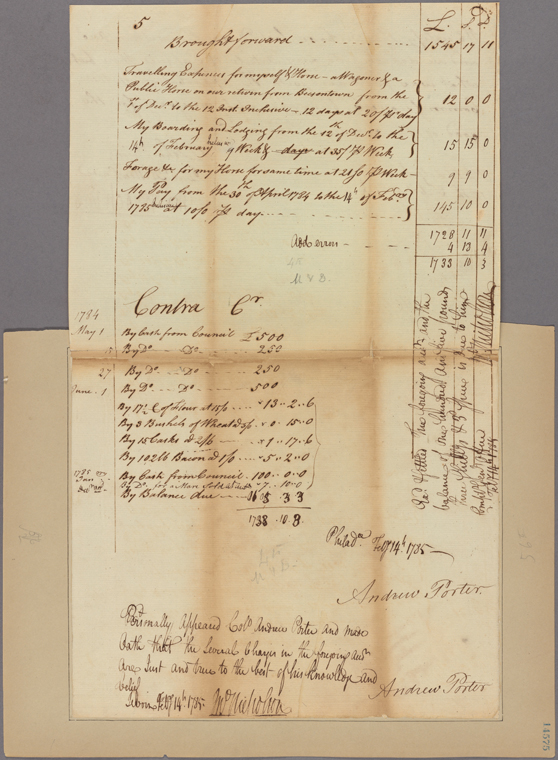 5
L. S. D.
Brought forward 1545 17 11
Travelling Expences for myself & Horse - a Wagoner & a
Public Horse on our return from Besontown from the
1st of Decr. to the 12 Inst. Inclusive - 12 days at 20/ pr day 12 0 0
My Boarding and Lodging from the 12th of Decr. to the
14th of February Inclusive 9 Weeks days at 35/ pr Week 15 15 0
Forage &c for my Horse for same time at 21/0 pr Week - 9 9 0
My Pay from the 30th of April 1784 to the 14th of Febry
1785 Inclusive at 10/0 pr day 145 10 0
1728 11 11
Add error 4 13 4
1733 10 3
Contra Cr.
1784
May 1 By Cash from Council £500
By Do. Do. 250
27 By Do. Do. 250
June 1 By Do. Do. 500
By 17 C of Flour at 15/0 13 2 6
By 3 Bushels of Wheat at 5/ 0 15 0
By 15 Casks at 2/6 1 17 6
By 102 lb Bacon at 1/0 5 2 0
1785
Jany By Cash from Council 100 0 0
By Do. for a Mare Sold 7 10 0
By Balance due
1738 10 8
Philada. Feby 14th 1785
Andrew Porter
Personally appeared Colo. Andrew Porter and made
Oath that the Several Charges in the foregoing acct.
are Just and true to the best of his knowledge and
belief
Sworn Feby 14th 1785. Jno Nicholson
Andrew Porter
The foregoing acct and the
balance of One hundred and five pounds
three Shillings & 3d is due to him
Jno Nicholson
Compt. Genls Office
Feby 14th 1785
14575